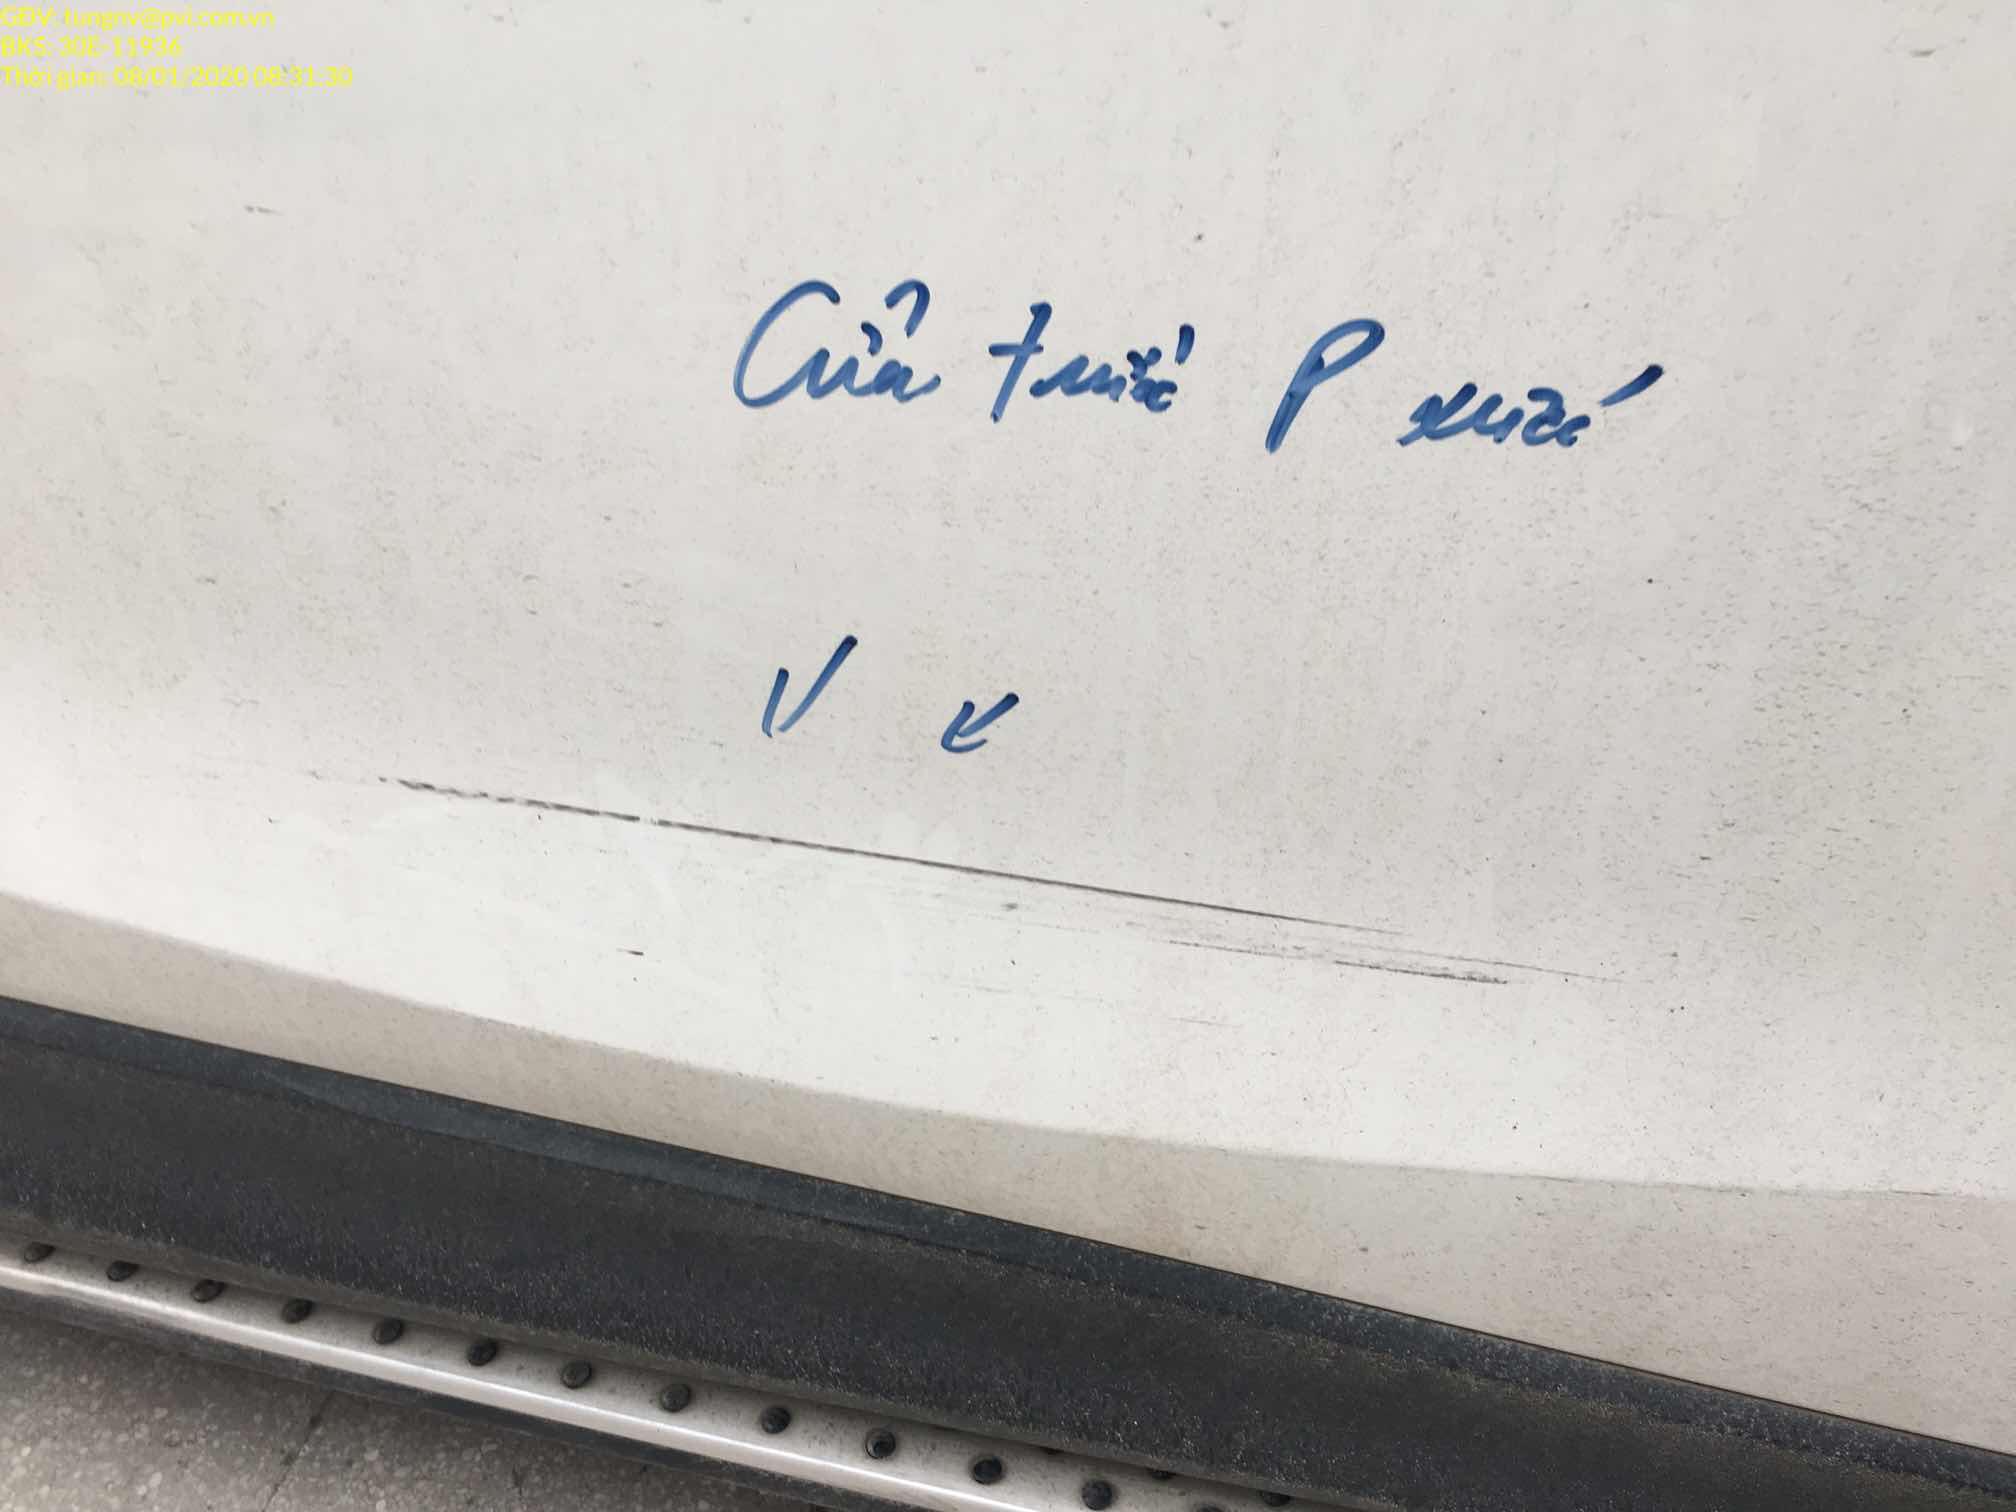 GDV: tungnv@pvi.com.vn
BKS: 30E-11936
Thời gian: 08/01/2020 08:31:30
Cửa trước P xước